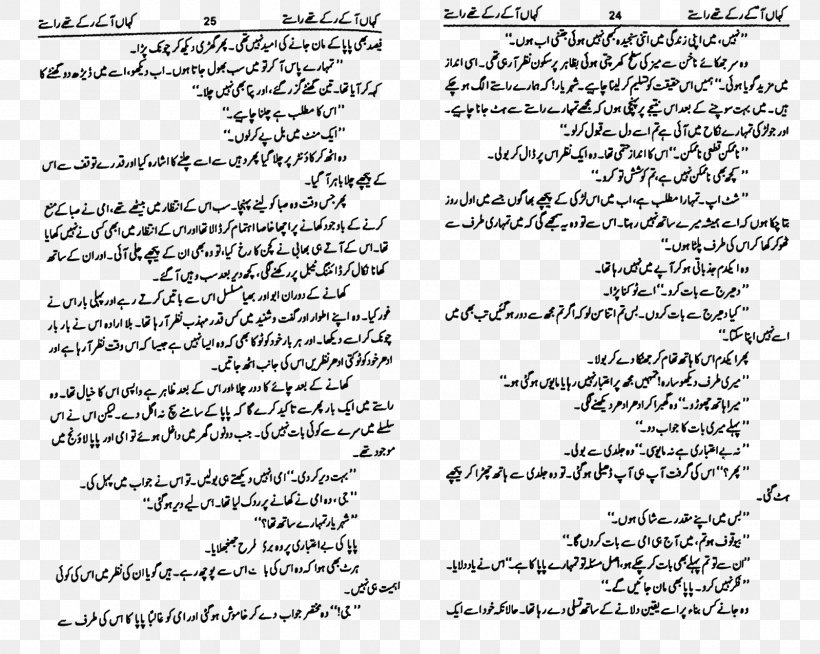 کہاں آ کے رکے تھے راستے 24 کہاں آ کے رکے تھے راستے
’’نہیں، میں اپنی زندگی میں اتنی سنجیدہ کبھی نہیں ہوئی جتنی اب ہوں۔‘‘
وہ سر جھکائے ناخن سے میز کی سطح کھرچتی ہوئی بظاہر پرسکون نظر آ رہی تھی۔ اسی انداز
میں مزید گویا ہوئی۔’’ہمیں اس حقیقت کو تسلیم کر لینا چاہیے۔ شہریار! کہ ہمارے راستے الگ ہو چکے
ہیں۔ میں بہت سوچنے کے بعد اس نتیجے پر پہنچی ہوں کہ مجھے تمہارے راستے سے ہٹ جانا چاہیے۔
اور جو لڑکی تمہارے نکاح میں آئی ہے تم اسے دل سے قبول کر لو۔‘‘
’’ناممکن قطعی ناممکن۔‘‘ اس کا انداز حتمی تھا۔ وہ ایک نظر اس پر ڈال کر بولی۔
’’کچھ بھی ناممکن نہیں ہے، تم کوشش تو کرو۔‘‘
’’شٹ اپ۔ تمہارا مطلب ہے، اب میں اس لڑکی کے پیچھے بھاگوں جسے میں اول روز
بتا چکا ہوں کہ اسے ہمیشہ میرے ساتھ نہیں رہنا۔ اس سے تو وہ یہ سمجھے گی کہ میں تمہاری طرف سے
ٹھوکر کھا کر اس کی طرف پلٹا ہوں۔‘‘
وہ ایکدم جذباتی ہو کر آپے میں نہیں رہا تھا۔
’’دھیرج سے بات کرو۔‘‘ اسے ٹوکنا پڑا۔
’’کیا دھیرج سے بات کروں۔ بس تم اتنا سن لو کہ اگر تم مجھ سے دور ہو گئیں تب بھی میں
اسے نہیں اپنا سکتا۔‘‘
پھر ایکدم اس کا ہاتھ تھام کر جھٹکا دے کر بولا۔
’’میری طرف دیکھو سارہ! تمہیں مجھ پر اعتبار نہیں رہا یا مایوس ہو گئی ہو۔‘‘
’’میرا ہاتھ چھوڑو۔‘‘ وہ گھبرا کر ادھر ادھر دیکھنے لگی۔
’’پہلے میری بات کا جواب دو۔‘‘
’’نہ بے اعتباری ہے نہ مایوسی۔‘‘ وہ جلدی سے بولی۔
’’پھر؟‘‘ اس کی گرفت آپ ہی آپ ڈھیلی ہو گئی۔ تو وہ جلدی سے ہاتھ چھڑا کر پیچھے
ہٹ گئی۔
’’بس میں اپنے مقدر سے شاکی ہوں۔‘‘
’’بیوقوف ہو تم، میں آج ہی امی سے بات کروں گا۔‘‘
’’ان سے تو تم پہلے بھی بات کر چکے ہو، اصل مسئلہ تو تمہارے پاپا کا ہے۔‘‘ اس نے یاد دلایا۔
’’فکر نہیں کرو۔ پاپا بھی مان جائیں گے۔‘‘
وہ جانے کس بناء پر اسے یقین دلانے کے ساتھ تسلی دے رہا تھا۔ حالانکہ خود اسے ایک
کہاں آ کے رکے تھے راستے 25 کہاں آ کے رکے تھے راستے
فیصد بھی پاپا کے مان جانے کی امید نہیں تھی۔ پھر گھڑی دیکھ کر چونک پڑا۔
’’تمہارے پاس آ کر تو میں سب بھول جاتا ہوں۔ اب دیکھو، اسے میں ڈیڑھ دو گھنٹے کا
کہہ کر آیا تھا۔ تین گھنٹے گزر گئے، اور پتا بھی نہیں چلا۔‘‘
’’اس کا مطلب ہے چلنا چاہیے۔‘‘
’’ایک منٹ میں بل پے کر لوں۔‘‘
وہ اٹھ کر کاؤنٹر پر چلا گیا پھر وہیں سے اسے چلنے کا اشارہ کیا اور قدرے توقف سے اس
کے پیچھے چلا باہر آ گیا۔
پھر جس وقت وہ صبا کو لینے پہنچا۔ سب اس کے انتظار میں بیٹھے تھے، امی نے صبا کے منع
کرنے کے باوجود کھانے پر اچھا خاصا اہتمام کر ڈالا تھا اور اس کے انتظار میں ابھی کسی نے نہیں کھایا
تھا۔ اس کے آتے ہی بھابی نے کچن کا رخ کیا، تو وہ بھی ان کے پیچھے چلی آئی۔ اور ان کے ساتھ
کھانا نکال کر ڈائننگ ٹیبل پر رکھنے لگی، کچھ دیر بعد سب وہیں آ گئے۔
کھانے کے دوران ابو اور بھیا مسلسل اس سے باتیں کرتے رہے اور پہلی بار اس نے
غور کیا۔ وہ اپنے اطوار اور گفت و شنید میں کس قدر مہذب نظر آ رہا تھا۔ بلا ارادہ اس نے بار بار
چونک کر اسے دیکھا۔ اور ہر بار خود کو ٹوکا بھی کہ وہ ایسا نہیں ہے جیسا کہ اس وقت نظر آ رہا ہے اور
ادھر خود کو ٹوکتی ادھر نظریں اس کی جانب اٹھ جاتیں۔
کھانے کے بعد چائے کا دور چلا اور اس کے بعد ظاہر ہے واپسی اس کا خیال تھا۔ وہ
راستے میں ایک بار پھر سے تاکید کرے گا کہ پاپا کے سامنے سچ نہ اگل دے۔ لیکن اس نے اس
سلسلے میں سرے سے کوئی بات نہیں کی۔ جب دونوں گھر میں داخل ہوئے تو امی اور پاپا لاؤنج میں
موجود تھے۔
’’بہت دیر کر دی۔‘‘ امی انہیں دیکھتے ہی بولیں۔ تو اس نے جواب میں پہل کی۔
’’جی، وہ امی نے کھانے پر روک لیا تھا۔ اس لیے دیر ہو گئی۔‘‘
’’شہریار تمہارے ساتھ تھا؟‘‘
پاپا کی بے اعتباری پر وہ بری طرح جھنجھلایا۔
ہرٹ بھی ہوا کہ وہ اس کی بات اس سے پوچھ رہے ہیں۔ گویا ان کی نظر میں اس کی کوئی
اہمیت ہی نہیں۔
’’جی!‘‘ وہ مختصر جواب دے کر خاموش ہو گئی اور امی کو غالباً پاپا کا اس کی طرف سے